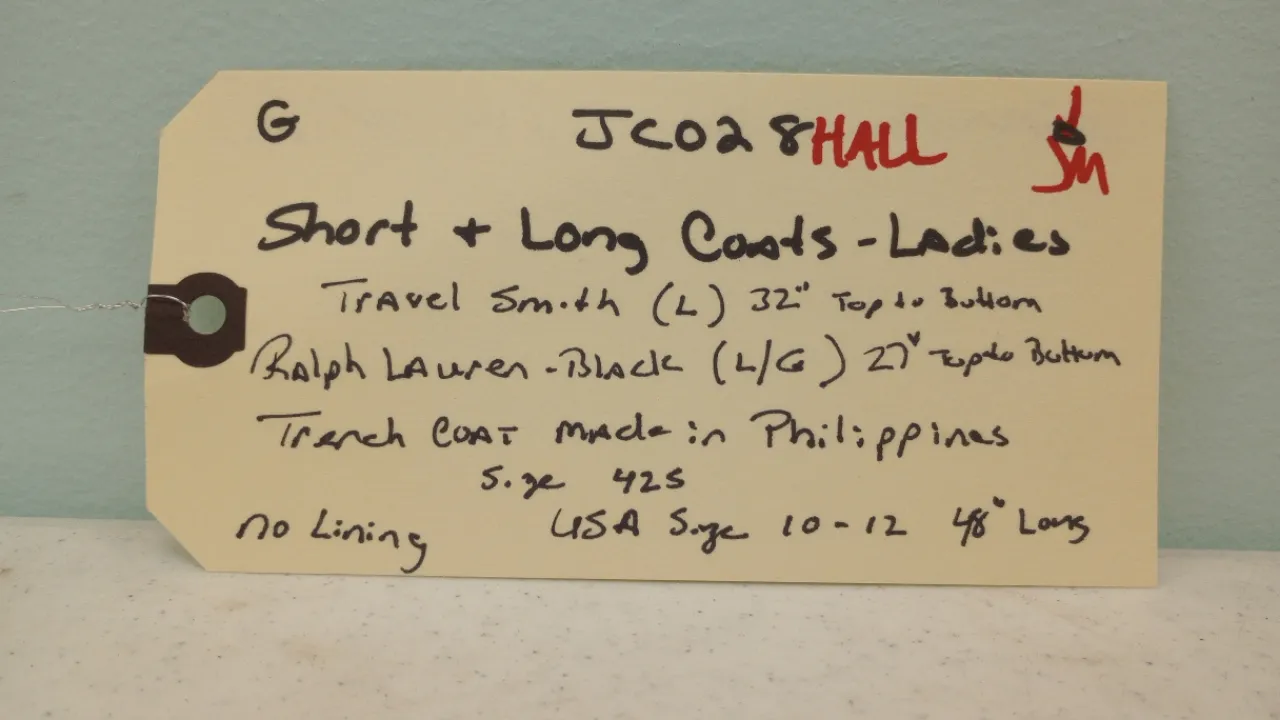 G JC028 HALL JM
Short + Long Coats - Ladies
Travel Smith (L) 32" Top to Buttom
Ralph Lauren - Black (L/G) 27" Top to Buttom
Trench COAT made in Philippines
Size 42S
no Lining USA Size 10-12 48" Long